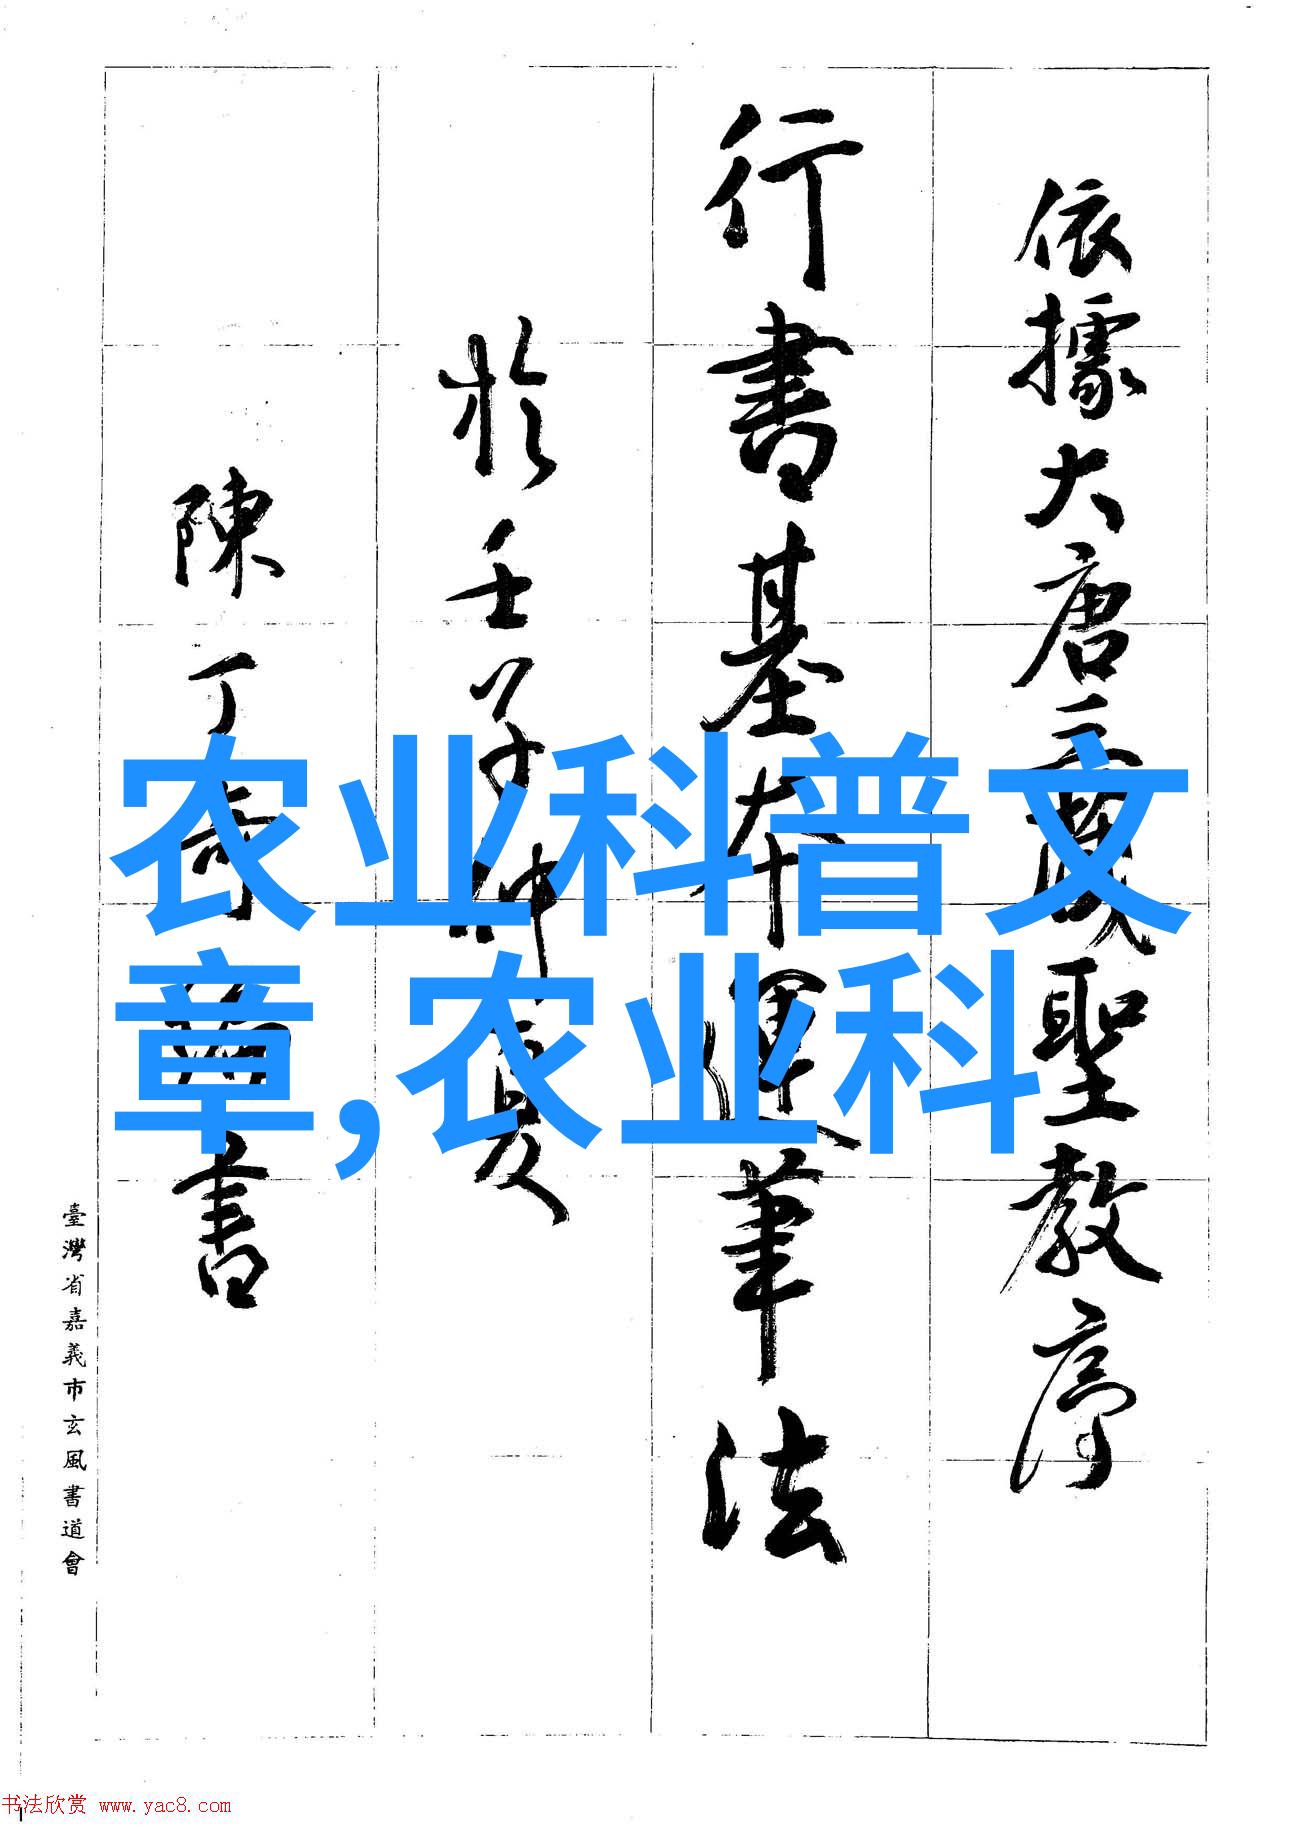 依據大唐三藏聖教序
行書基本運筆法
於壬子仲夏
陳丁奇書
臺灣省嘉義市玄風書道會
农业科普文
章,农业科
书法欣赏 www.yac8.com
1